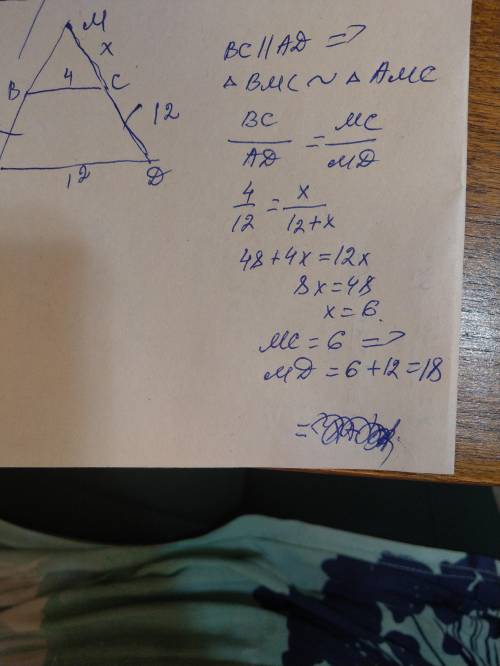 M
x
B 4 C
12
12 D
BC||AD =>
△BMC ~ △AMC
BC/AD = MC/MD
4/12 = x/12+x
48+4x=12x
8x=48
x=6.
MC=6 =>
MD=6+12=18
=